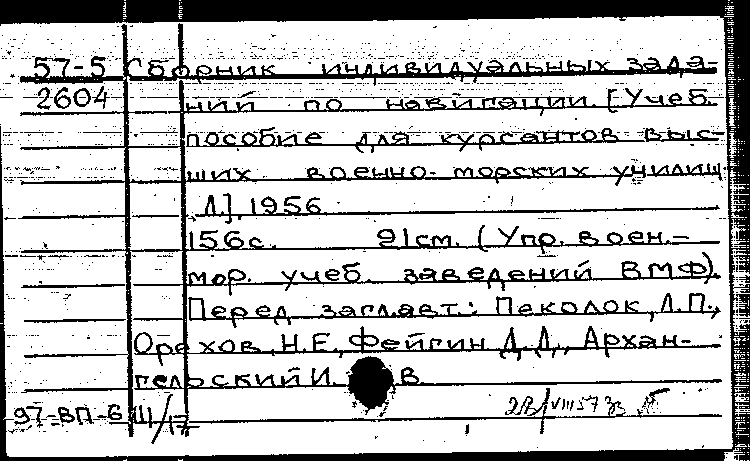 57-5 Сборник индивидуальных зада-
2604 ний по навигации. [Учеб.
пособие для курсантов выс-
ших военно-морских училищ
Л.], 1956.
156с. 21см. (Упр. воен.-
мор. учеб. заведений ВМФ).
Перед загл.авт.: Пеколок, Л.П.,
Орехов, Н.Е., Фейгин Д.Д., Архан-
гельский И. В.
97-ВП-6 III/17